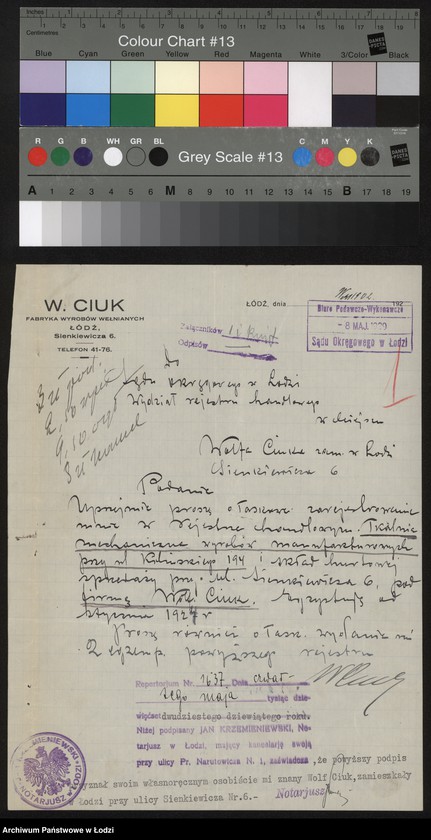 Inches
Centimetres
Colour Chart #13
DANES PICTA
Blue Cyan Green Yellow Red Magenta White 3/Color Black
R G B WH GR BL Grey Scale #13 C M Y K
DANES PICTA
A 1 2 3 4 5 6 M 8 9 10 11 12 13 14 15 B 17 18 19
W. CIUK
FABRYKA WYROBÓW WEŁNIANYCH
ŁÓDŹ,
Sienkiewicza 6.
TELEFON 41-76.
ŁÓDŹ, dnia 192
Biuro Podawczo-Wykonawcze
- 8 MAJ. 1929
Sądu Okręgowego w Łodzi
Załączników
Odpisów
Do
Sądu Okręgowego w Łodzi
Wydział rejestru handlowego
w miejscu
Wolfa Ciuka zam. w Łodzi
Sienkiewicza 6
Podanie
Uprzejmie proszę o łaskawe zarejestrowanie
mnie w rejestrze handlowym. Tkalnia
mechaniczna wyrobów manufakturowych
przy ul. Kilińskiego 194 i skład hurtowej
sprzedaży przy ul. Sienkiewicza 6, pod
firmą Wolf Ciuk. Egzystuję od
stycznia 1927 r
Proszę również o łask. wydanie mi
2 egzemp. powyższego rejestru
W Ciuk
Repertorium Nr. 1637. Dnia ósme-
go maja tysiąc dzie-
więćset dwudziestego dziewiątego roku.
Niżej podpisany JAN KRZEMIENIEWSKI, No-
tarjusz w Łodzi, mający kancelarję swoją
przy ulicy Pr. Narutowicza N. 1, zaświadcza ,że powyższy podpis
uznał swoim własnoręcznym osobiście mi znany Wolf Ciuk,zamieszkały
Łodzi przy ulicy Sienkiewicza Nr.6.- Notarjusz
JAN KRZEMIENIEWSKI
NOTARJUSZ w ŁODZI
Archiwum Państwowe w Łodzi